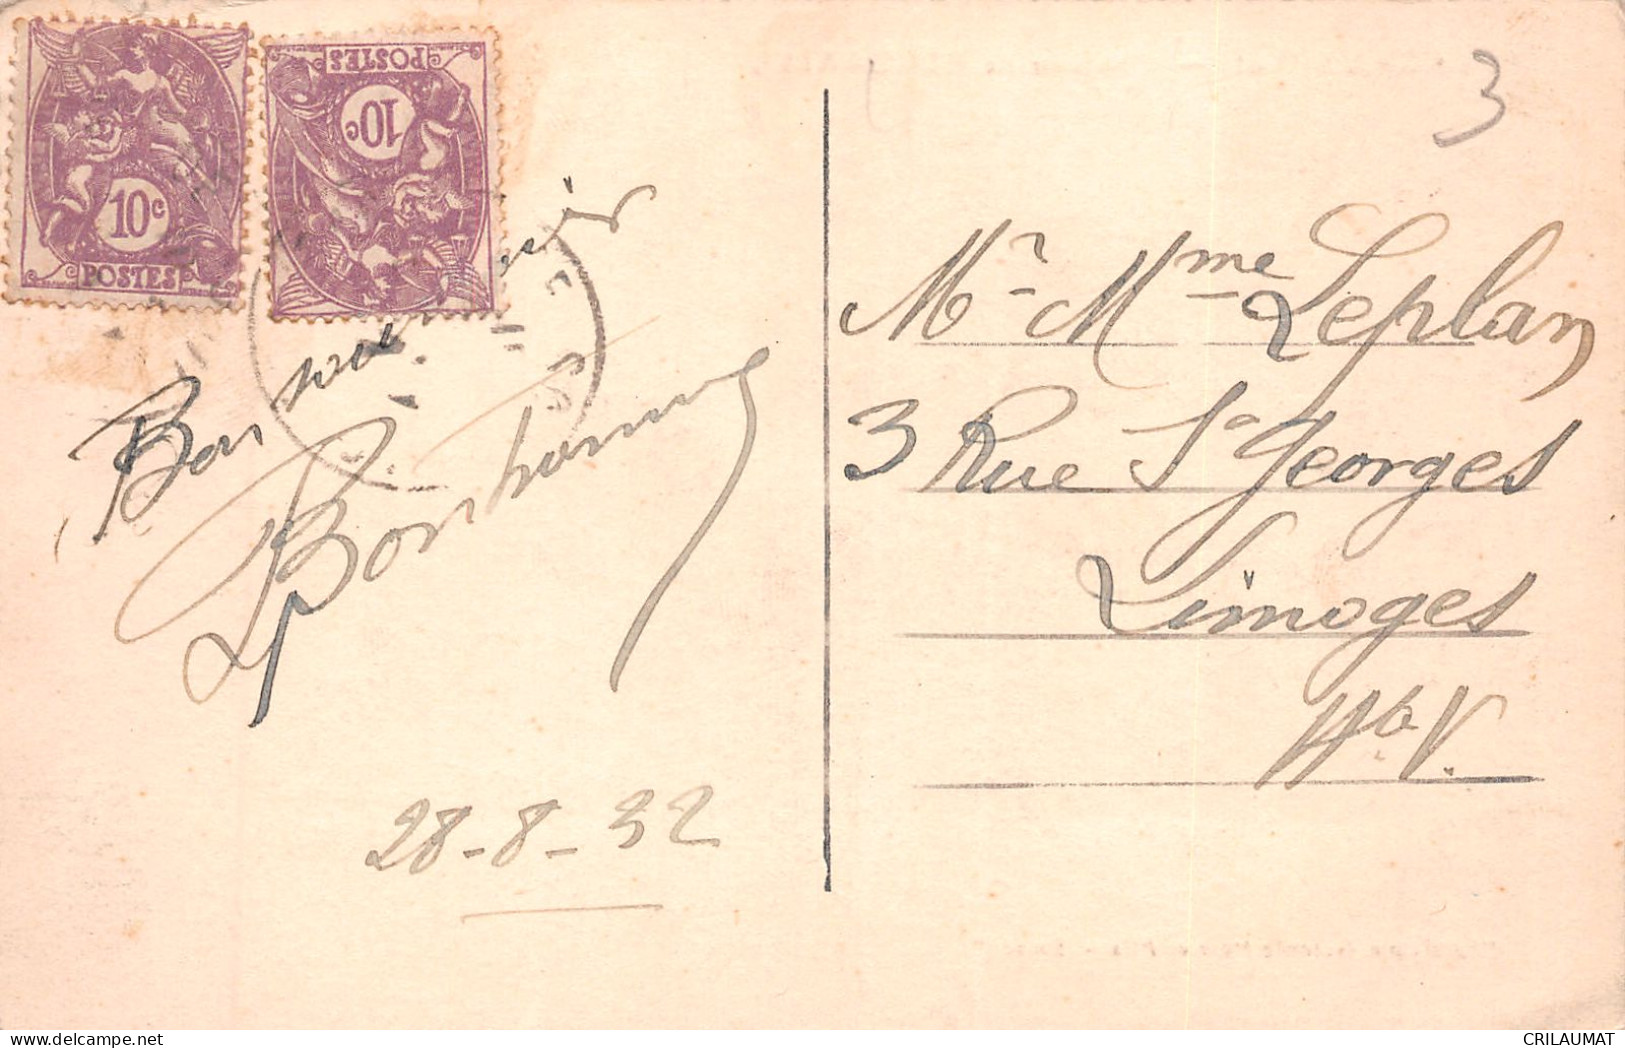 10c
POSTES
POSTES
10c
3
Bon souvenir
28-8-32
Mr. Mme Leplan
3 Rue St Georges
Limoges
Hte V.
CRILAUMAT